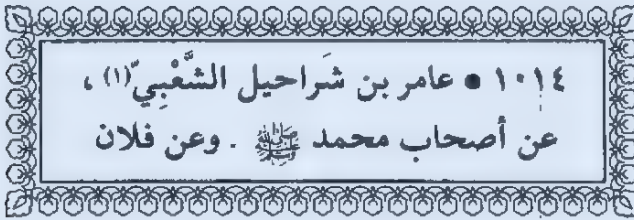 ١٠١٤ • عامر بن شَراحيل الشَّعْبِيّ(١) ،
عن أصحاب محمد ﷺ . وعن فلان